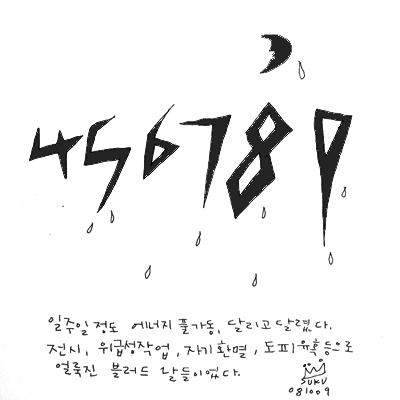 456789
일주일 정도 에너지 풀가동, 달리고 달렸다.
전시, 위급성작업, 자기환멸, 도피유혹등으로
얼룩진 블러드 날들이었다.
SUKU
081009